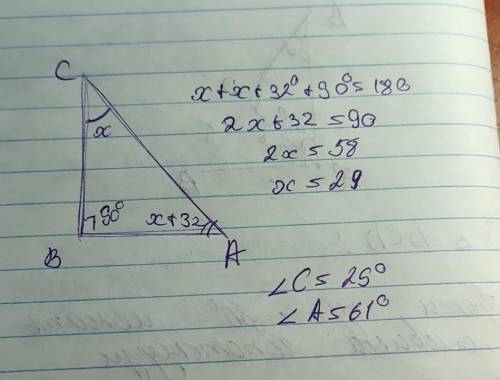 C
x
90°
x+32
B
A
x+x+32°+90°=180
2x+32=90
2x=58
x=29
∠C=29°
∠A=61°